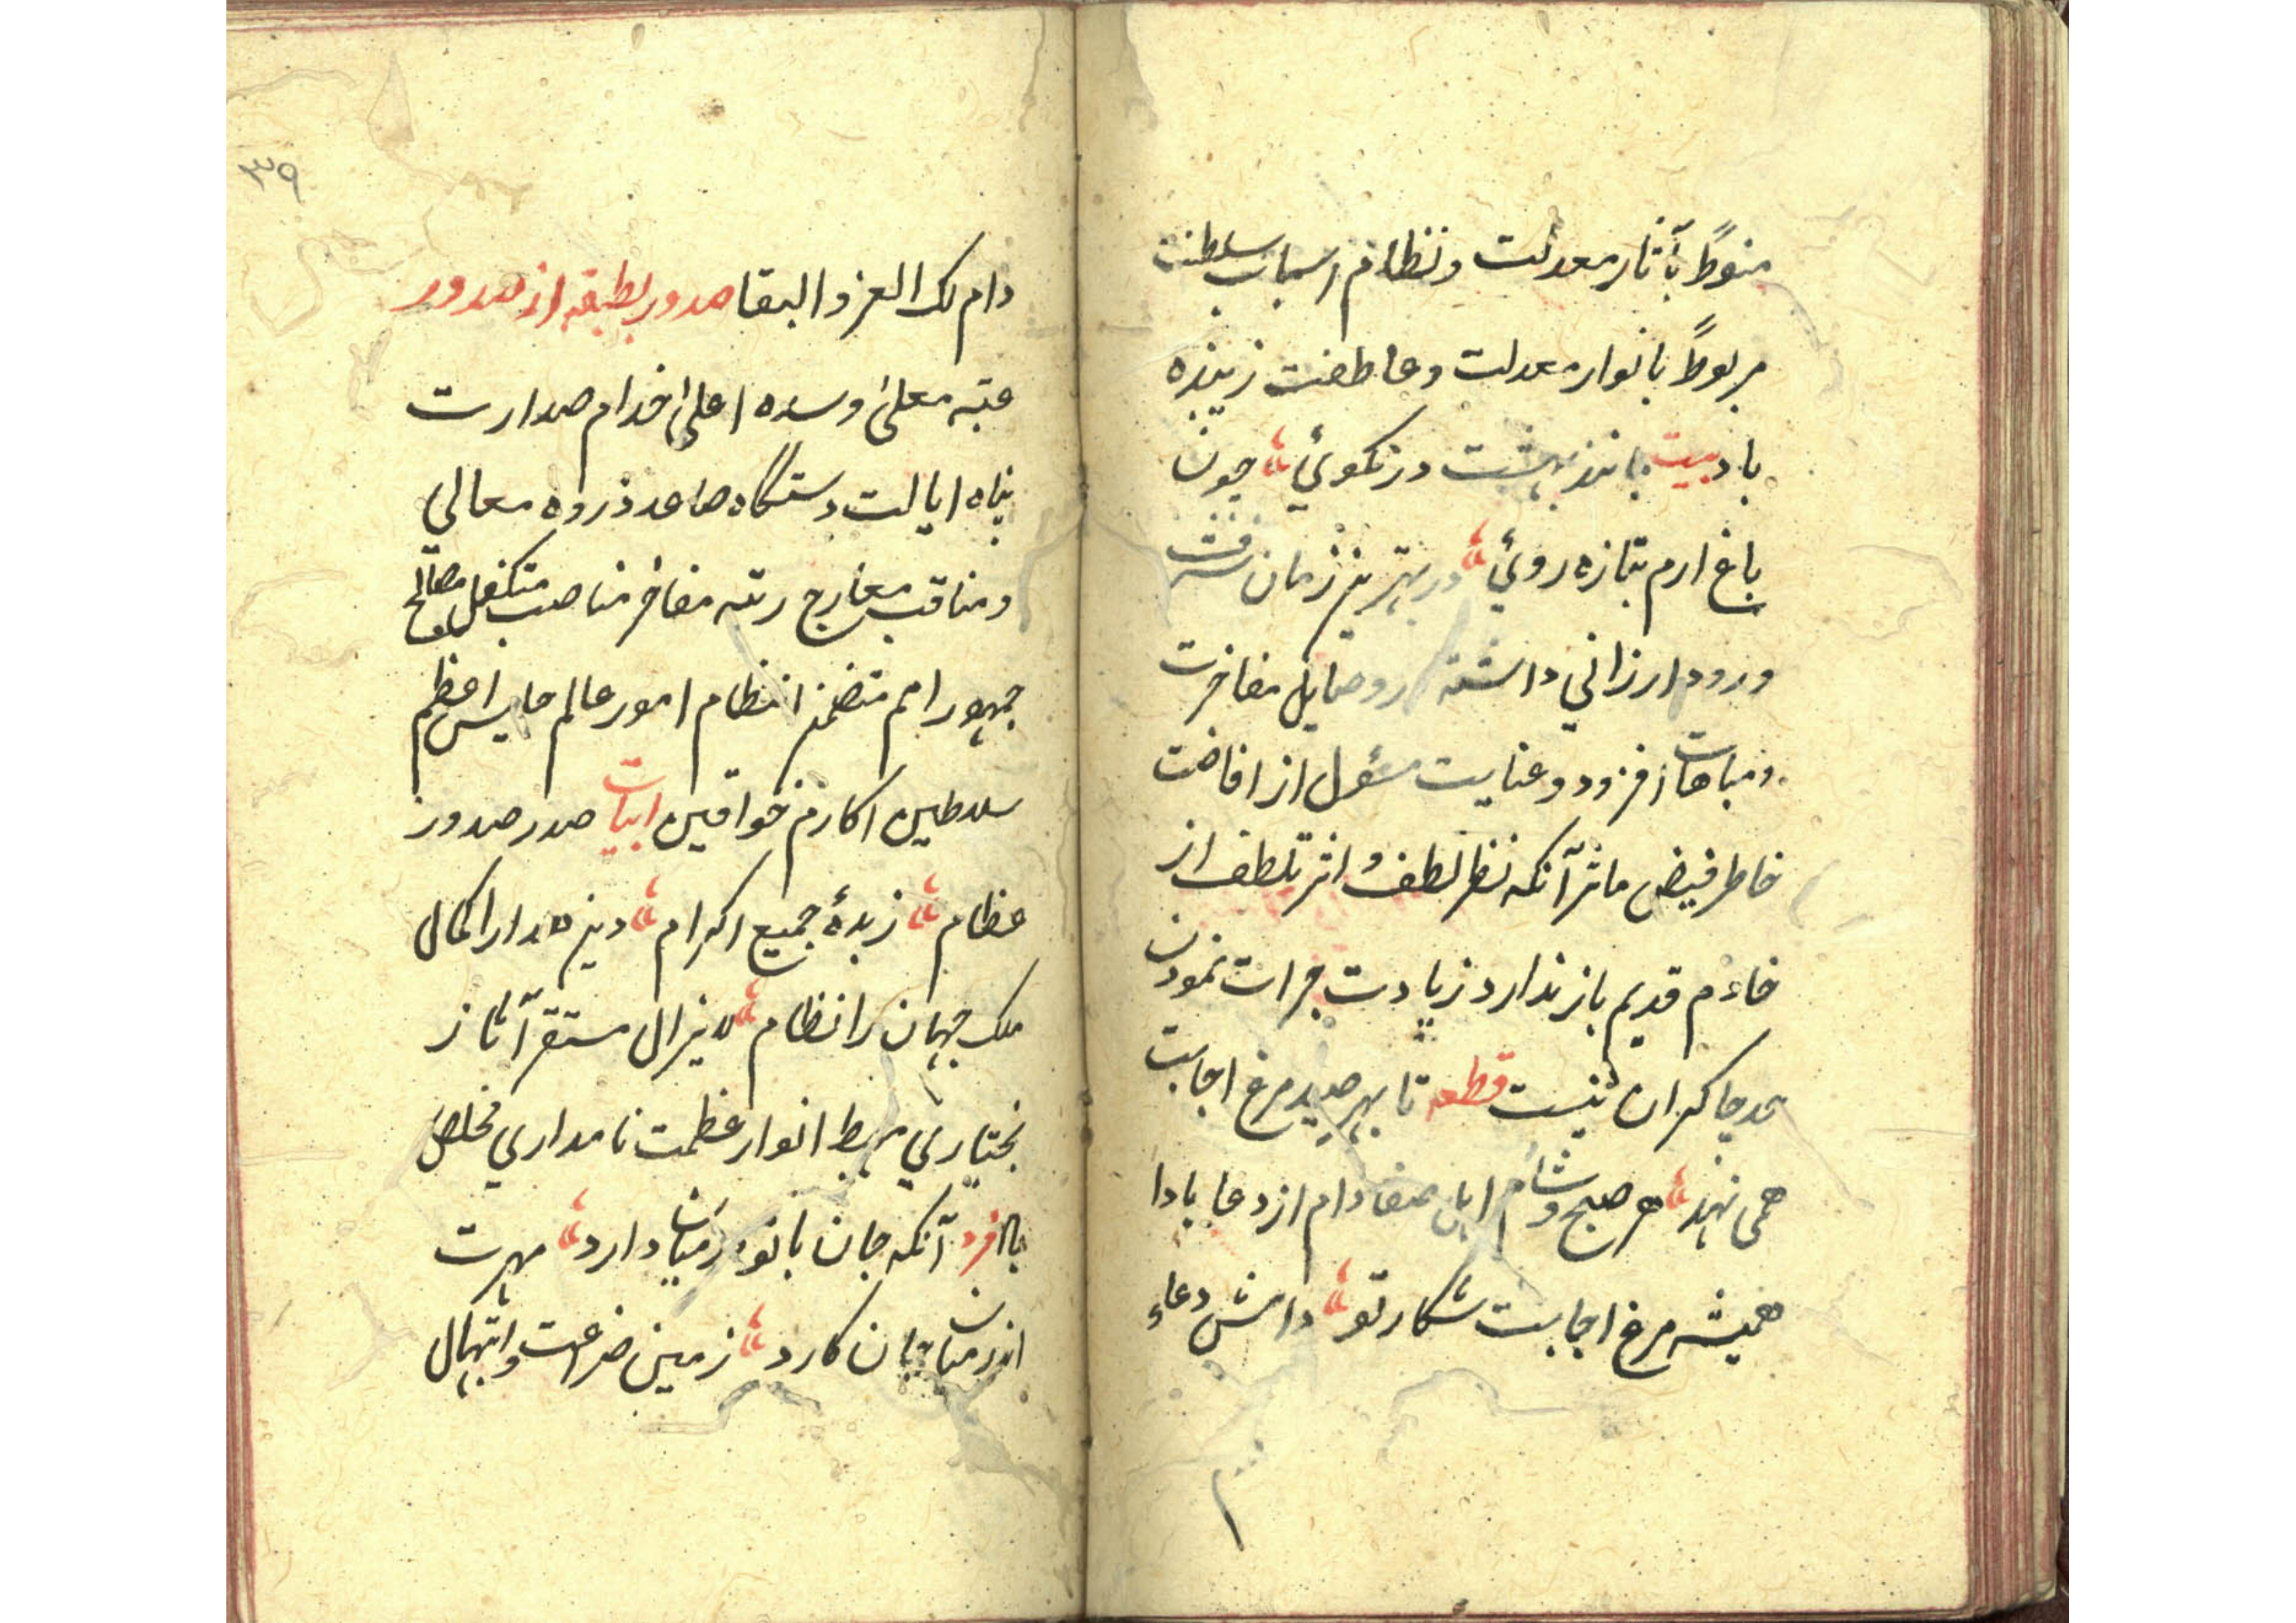 منوطً بآثار معدلت ونظام اسباب سلطنت
مربوطً بانوار معدلت وعاطفت زیبنده
باد بیت مانند بهشت در نکوئي چون
باغ ارم بتازه روئي در بهترین زمان شرفت
ورود ارزاني داشته مفاخرت
ومباهات افزود وعنایت مسئول از افاضت
خاطر فیض ماثر آنکه نظر لطف و اثر تلطف از
خادم قدیم باز ندارد زیادت جرات نمودن
حد چاکران نیست قطعه تا بهر صید مرغ اجابت
همی نهند هر صبح وشام دام از دعا بادا
همیشه مرغ اجابت شکار تو دامش دعاء
۳۹
دام لک العز والبقا صدور بطبقه از صدور
عتبه معلیٰ وسده اعلیٰ خدام صدارت
پناه ایالت دستگاه صاعد ذروه معالي
ومناقب معارج رتبه مفاخر مناصب متکفل مصالح
جمهور امم متضمن انتظام امور عالم اعظم
سلاطین اکارم خواقین ابیات صدر صدور
عظام زبدهٔ جمیع اکرام دین را کمال
ملک جهان را نظام لایزال مستقر آثار
بختیاري مهبط انوار عظمت نامداري مخلص
فرد آنکه جان با تو در میان دارد مهرت
اندر میان جان کارد زمین ضراعت وابتهال